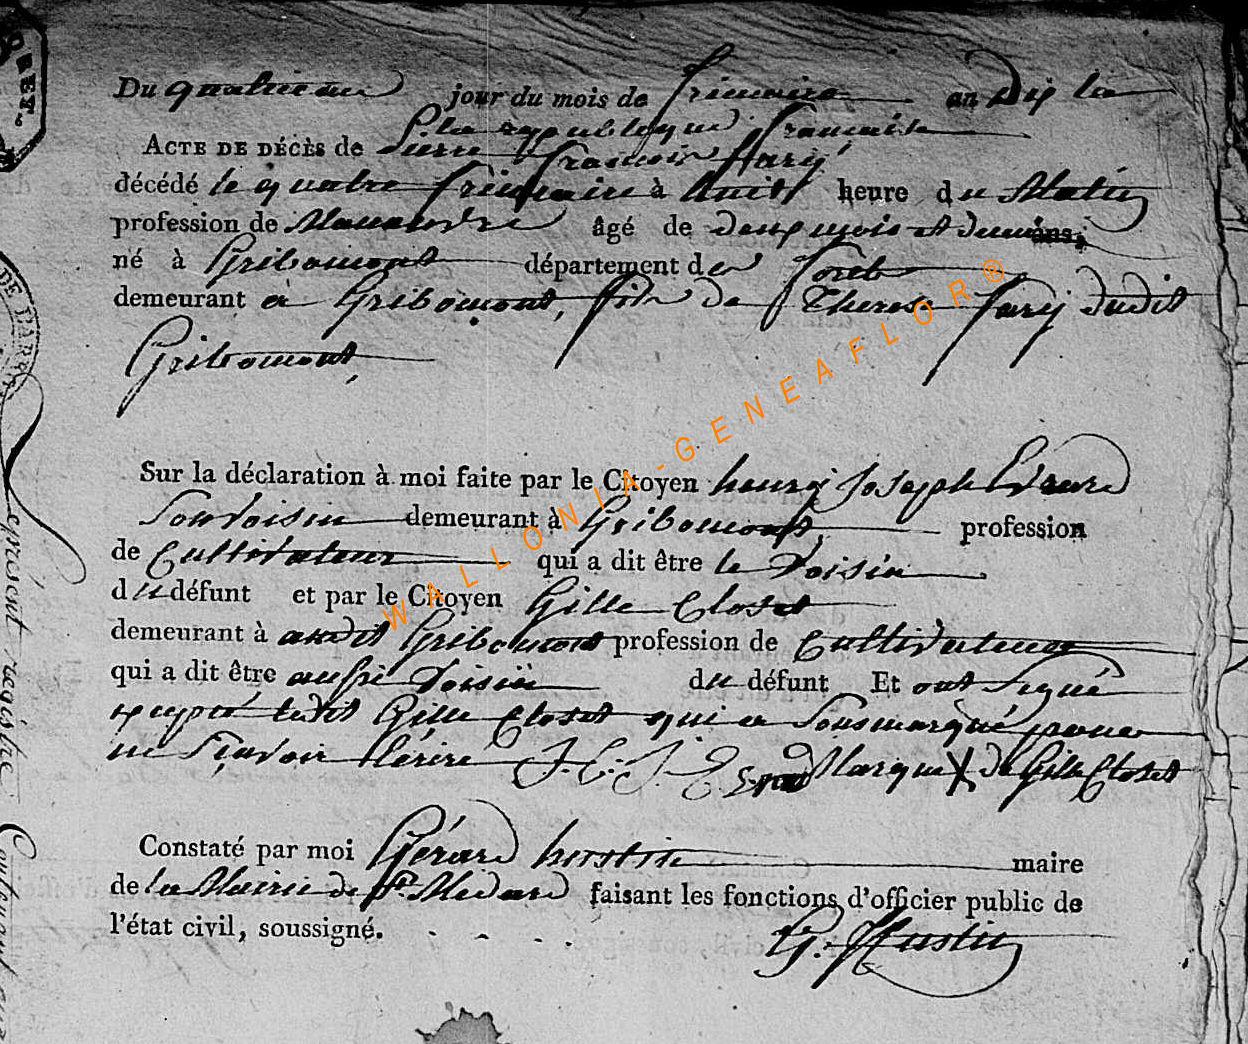 Du quatrieme jour du mois de frimaire an Dix de
la republique française
ACTE DE DÉCÈS de Pierre francois Jary
décédé le quatre frimaire à huit heure du Matin
profession de Manœuvre âgé de deux mois et demi ans,
né à Gribomont département des forêts
demeurant à Gribomont, fils de Therese Jary dudit
Gribomont,
Sur la déclaration à moi faite par le Citoyen henry Joseph Evrard
Son Voisin demeurant à Gribomont, profession
de Cultivateur qui a dit être le Voisin
du défunt et par le Citoyen Gille Closet
demeurant à audit Gribomont profession de Cultivateur
qui a dit être aussi Voisin du défunt Et ont Signé
excepté ledit Gille Closet qui a Sousmarqué pour
ne Sçavoir Lérire J. Marque X de Gille Closet
Constaté par moi Gérard hustin maire
de la Mairie de St. Medard faisant les fonctions d'officier public de
l'état civil, soussigné.
G. Hustin
WALLONIA-GENEAFLOR®